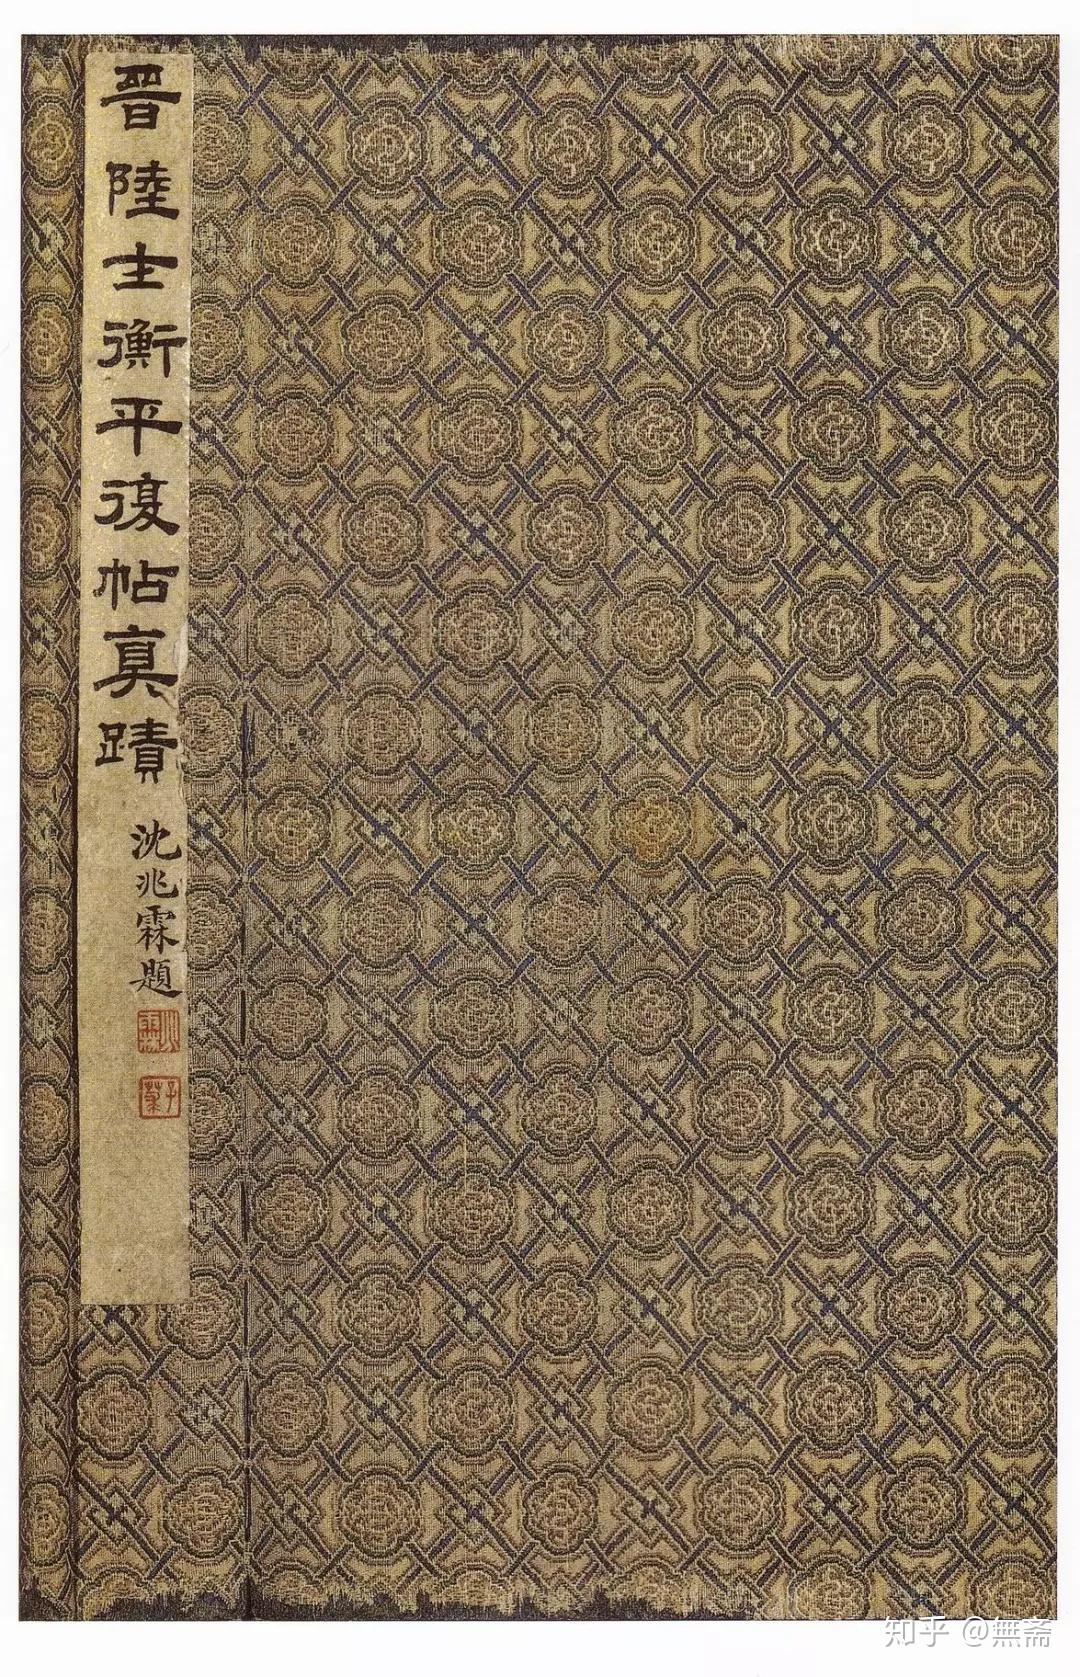 晉陸士衡平復帖真蹟
沈兆霖題
兆霖
子菉
知乎 @無斋